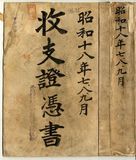 昭和十八年七八九月
收支證憑書
昭和十八年七八九月